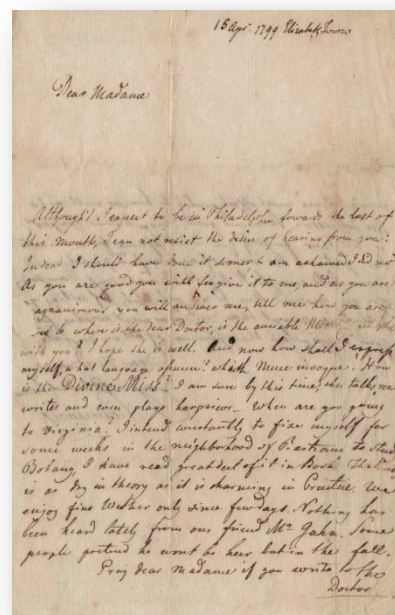 15 Apr. 1799 Elizabeth Town
Dear Madame
Although I expect to be in Philadelphia towards the last of
this month, I can not resist the desire of hearing from you:
Indead I should have done it sooner & am ashamed I did not
As you are good you will forgive it to me, and as you are
you will answer me, tell me how you are
& when is the dear Doctor, is the amiable
with you? I hope she is well. And now how shall I express
myself, what language assume? which Muse invoque? How
is the Divine Miss? I am sure by this time, she talks,
writes and even plays harpsicor_ When are you going
to Virginia? I intend constantly to fixe myself for
some weeks in the neighborhood of to study
Botany I have read great deal of it in Book. The Study
is as dry in theory as it is charming in Practice. We
enjoy fine Weather only since few days. Nothing has
been heard lately from our friend Mr Gahn. Some
people pretend he wont be heer but in the fall.
Pray dear Madame if you write to the
Doctor